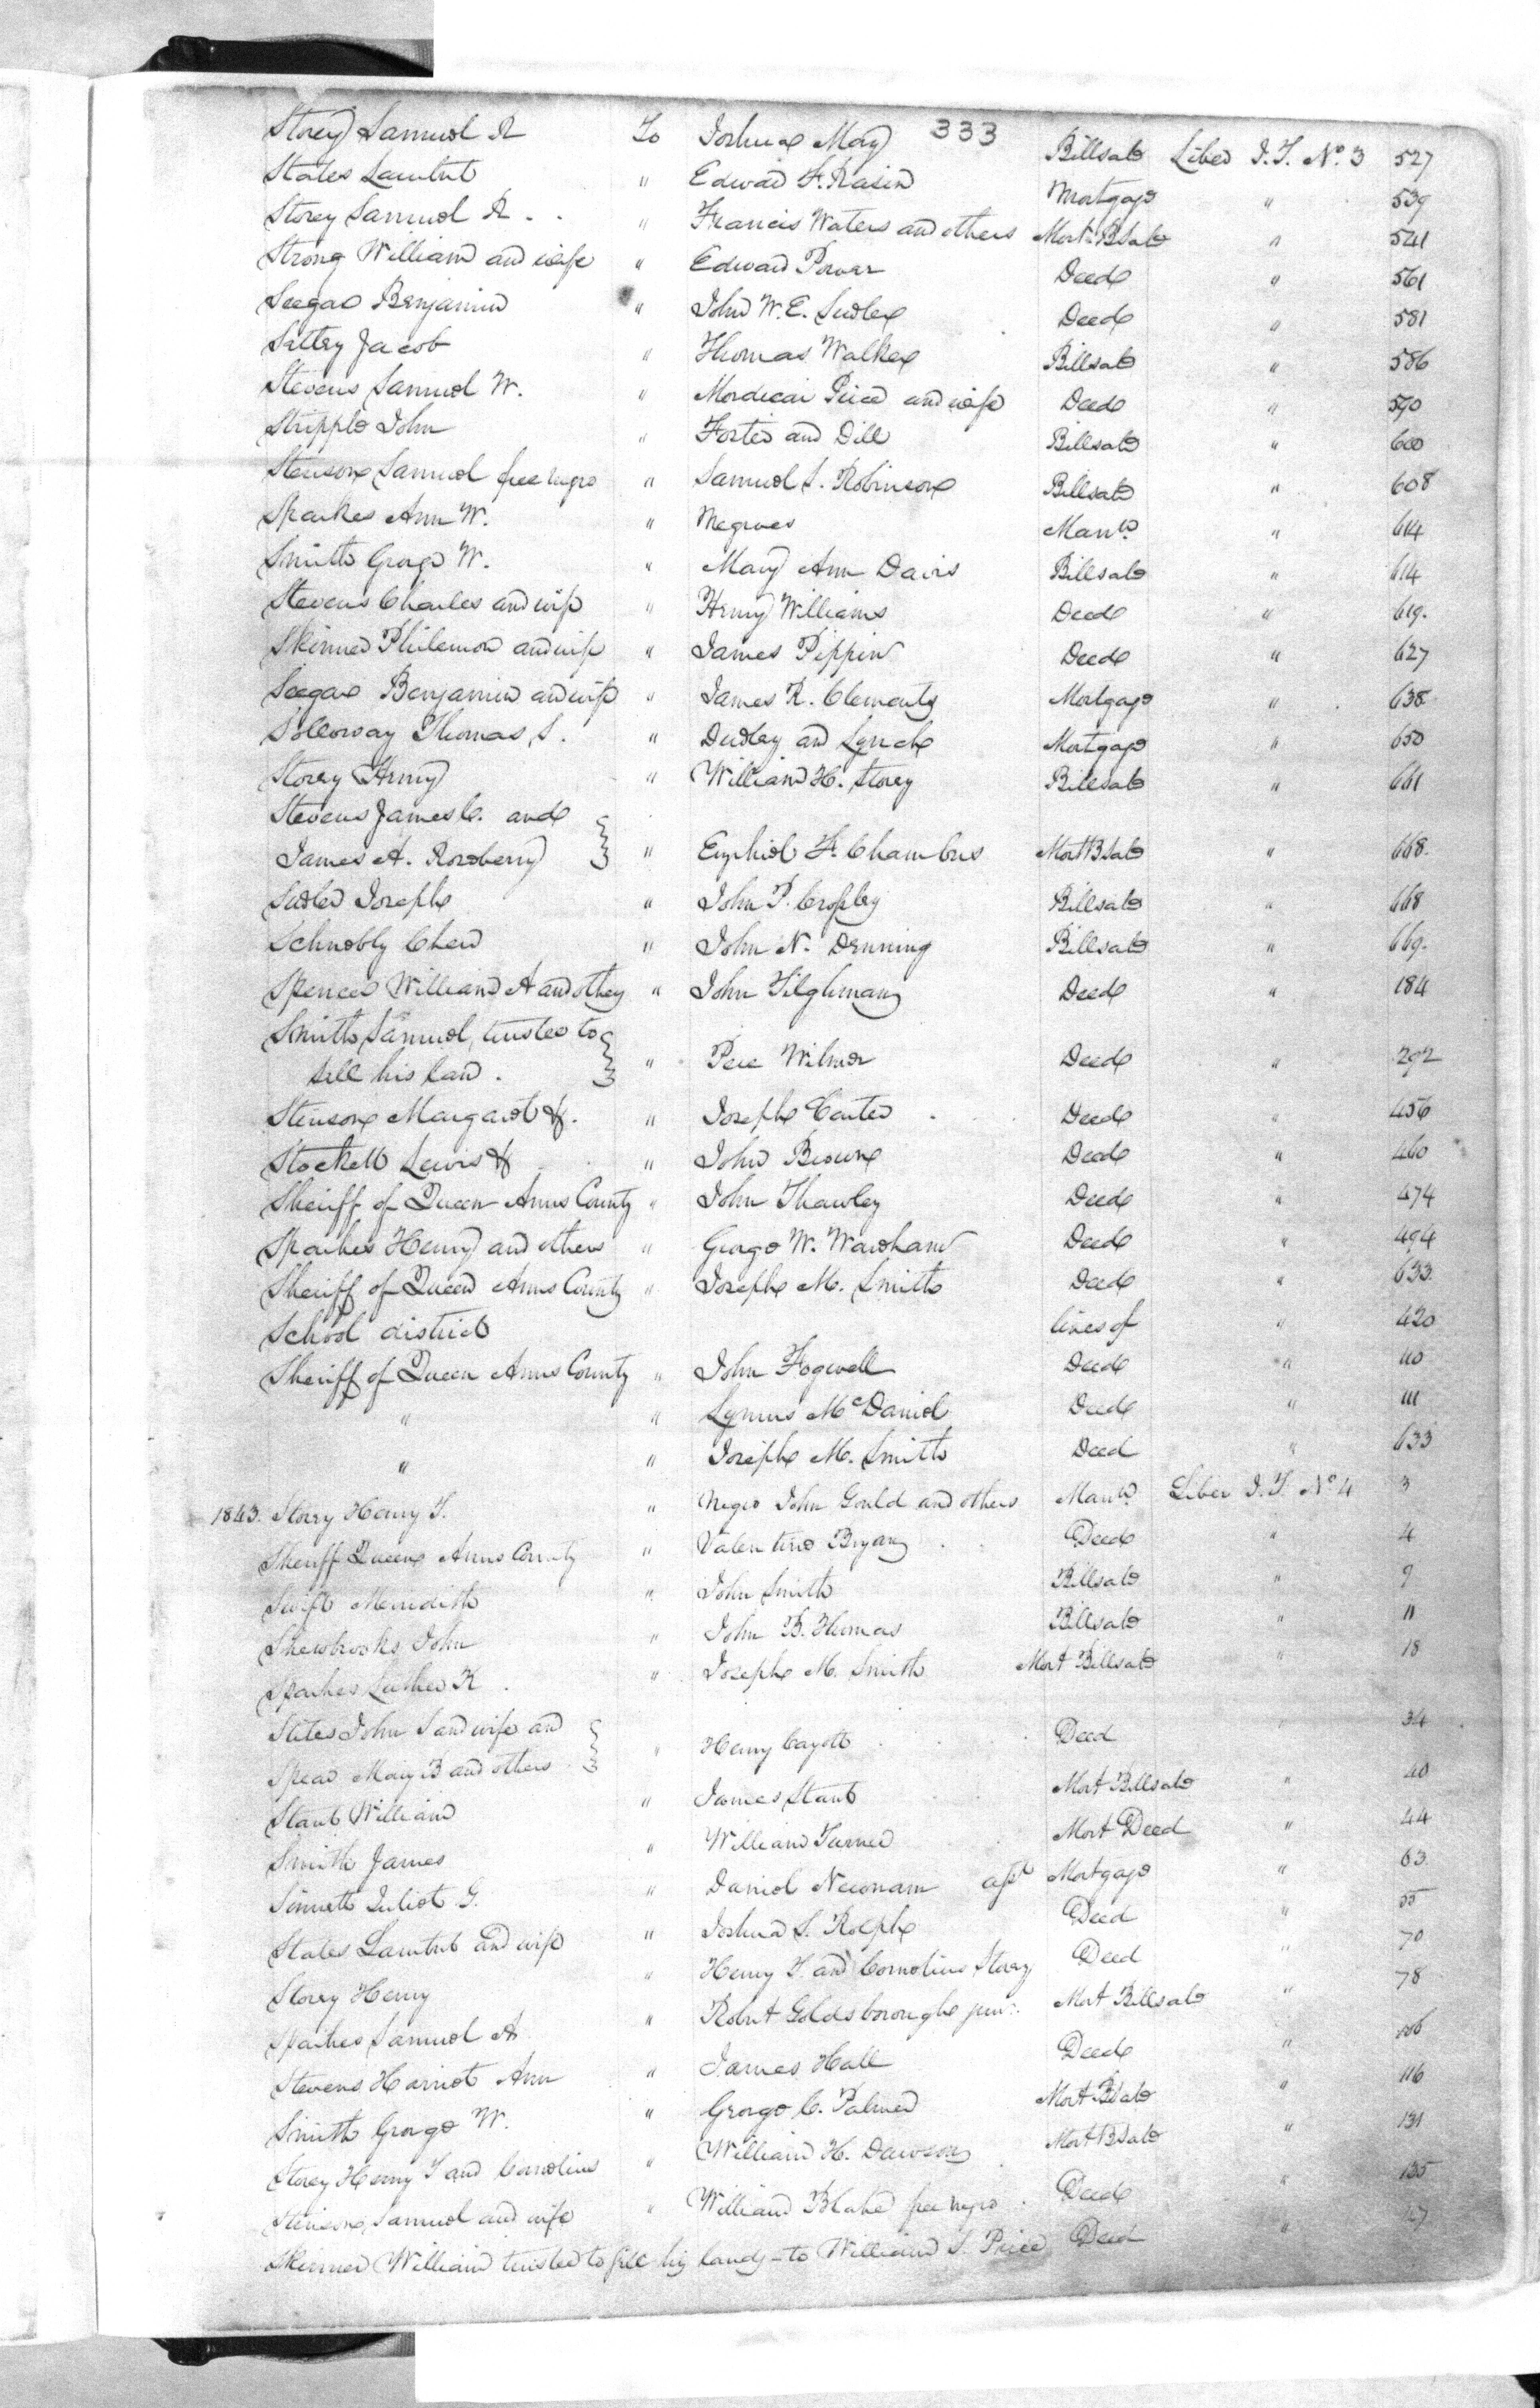 333
Storey Samuel R To Joshua May Billsale Liber J.T. No. 3 527
States Lambert " Edward F. Rasin Mortgage " 539
Storey Samuel R. " Francis Waters and others Mort. BSale " 541
Strong William and wife " Edward Power Deed " 561
Seegar Benjamin " John W. E. Sudler Deed " 581
Jacob " Thomas Walker Billsale " 586
Stevens Samuel W. " Mordecai Price and wife Deed " 590
Stripple John " Foster and Dill Billsale " 600
Stenson Samuel free negro " Samuel S. Robinson Billsale " 608
Sparkes Ann W. " Negroes Mann. " 614
Smith George W. " Mary Ann Davis Billsale " 614
Stevens Charles and wife " Henry Williams Deed " 619.
Skinner Philemon and wife " James Pippin Deed " 627
Seegar Benjamin and wife " James R. Clements Mortgage " 638
Solloway Thomas S. " Dudley and Lynch Mortgage " 650
Storey Henry " William H. Storey Billsale " 661
Stevens James C. and
James A. Roseberry " Ezekiel F. Chambers Mort BSale " 668.
Sudler Joseph " John P. Cropley Billsale " 668
Schnebly Chew " John N. Denning Billsale " 669.
Spencer William A and others " John Tilghman Deed " 184
Smith Samuel, trustee to
sell his land. " Pere Wilmer Deed " 292
Stenson Margaret &. " Joseph Carter Deed " 456
Stockett Lewis & " John Brown Deed " 460
Sheriff of Queen Anns County " John Thawley Deed " 474
Sparkes Henry and others " George W. Warsham Deed " 494
Sheriff of Queen Anns County " Joseph M. Smith Deed " 633
School district lines of " 420
Sheriff of Queen Anns County " John Fogwell Deed " 110
" " Lynus McDaniel Deed " 111
" " Joseph M. Smith Deed " 633
1843. Storey Henry T. " Negro John Gould and others Mann. Liber J.T. No. 4 3
Sheriff Queen Anns County " Valentine Bryan Deed " 4
Swift Meredith " John Smith Billsale " 9
Shewbrooks John " John B. Thomas Billsale " 11
Sparkes Luther K. " Joseph M. Smith Mort Billsale " 18
Stites John S and wife and
Spear Mary B and others " Henry Deed " 34
Stant William " James Stant Mort Billsale " 40
Smith James " William Turner Mort Deed " 44
Sinnett Juliet G. " Daniel Newnam Mortgage " 63
States Lambert and wife " Joshua S. Rolph Deed " 55
Storey Henry " Henry T. and Cornelius Storey Deed " 70
Sparkes Samuel A " Robert Goldsborough junr. Mort Billsale " 78
Stevens Harriet Ann " James Hall Deed " 106
Smith George W. " George C. Palmer Mort BSale " 116
Storey Henry T and Cornelius " William H. Dawson Mort BSale " 131
Stenson Samuel and wife " William Blake free negro Deed " 135
Skinner William trustee to sell his lands - to William S. Price Deed "